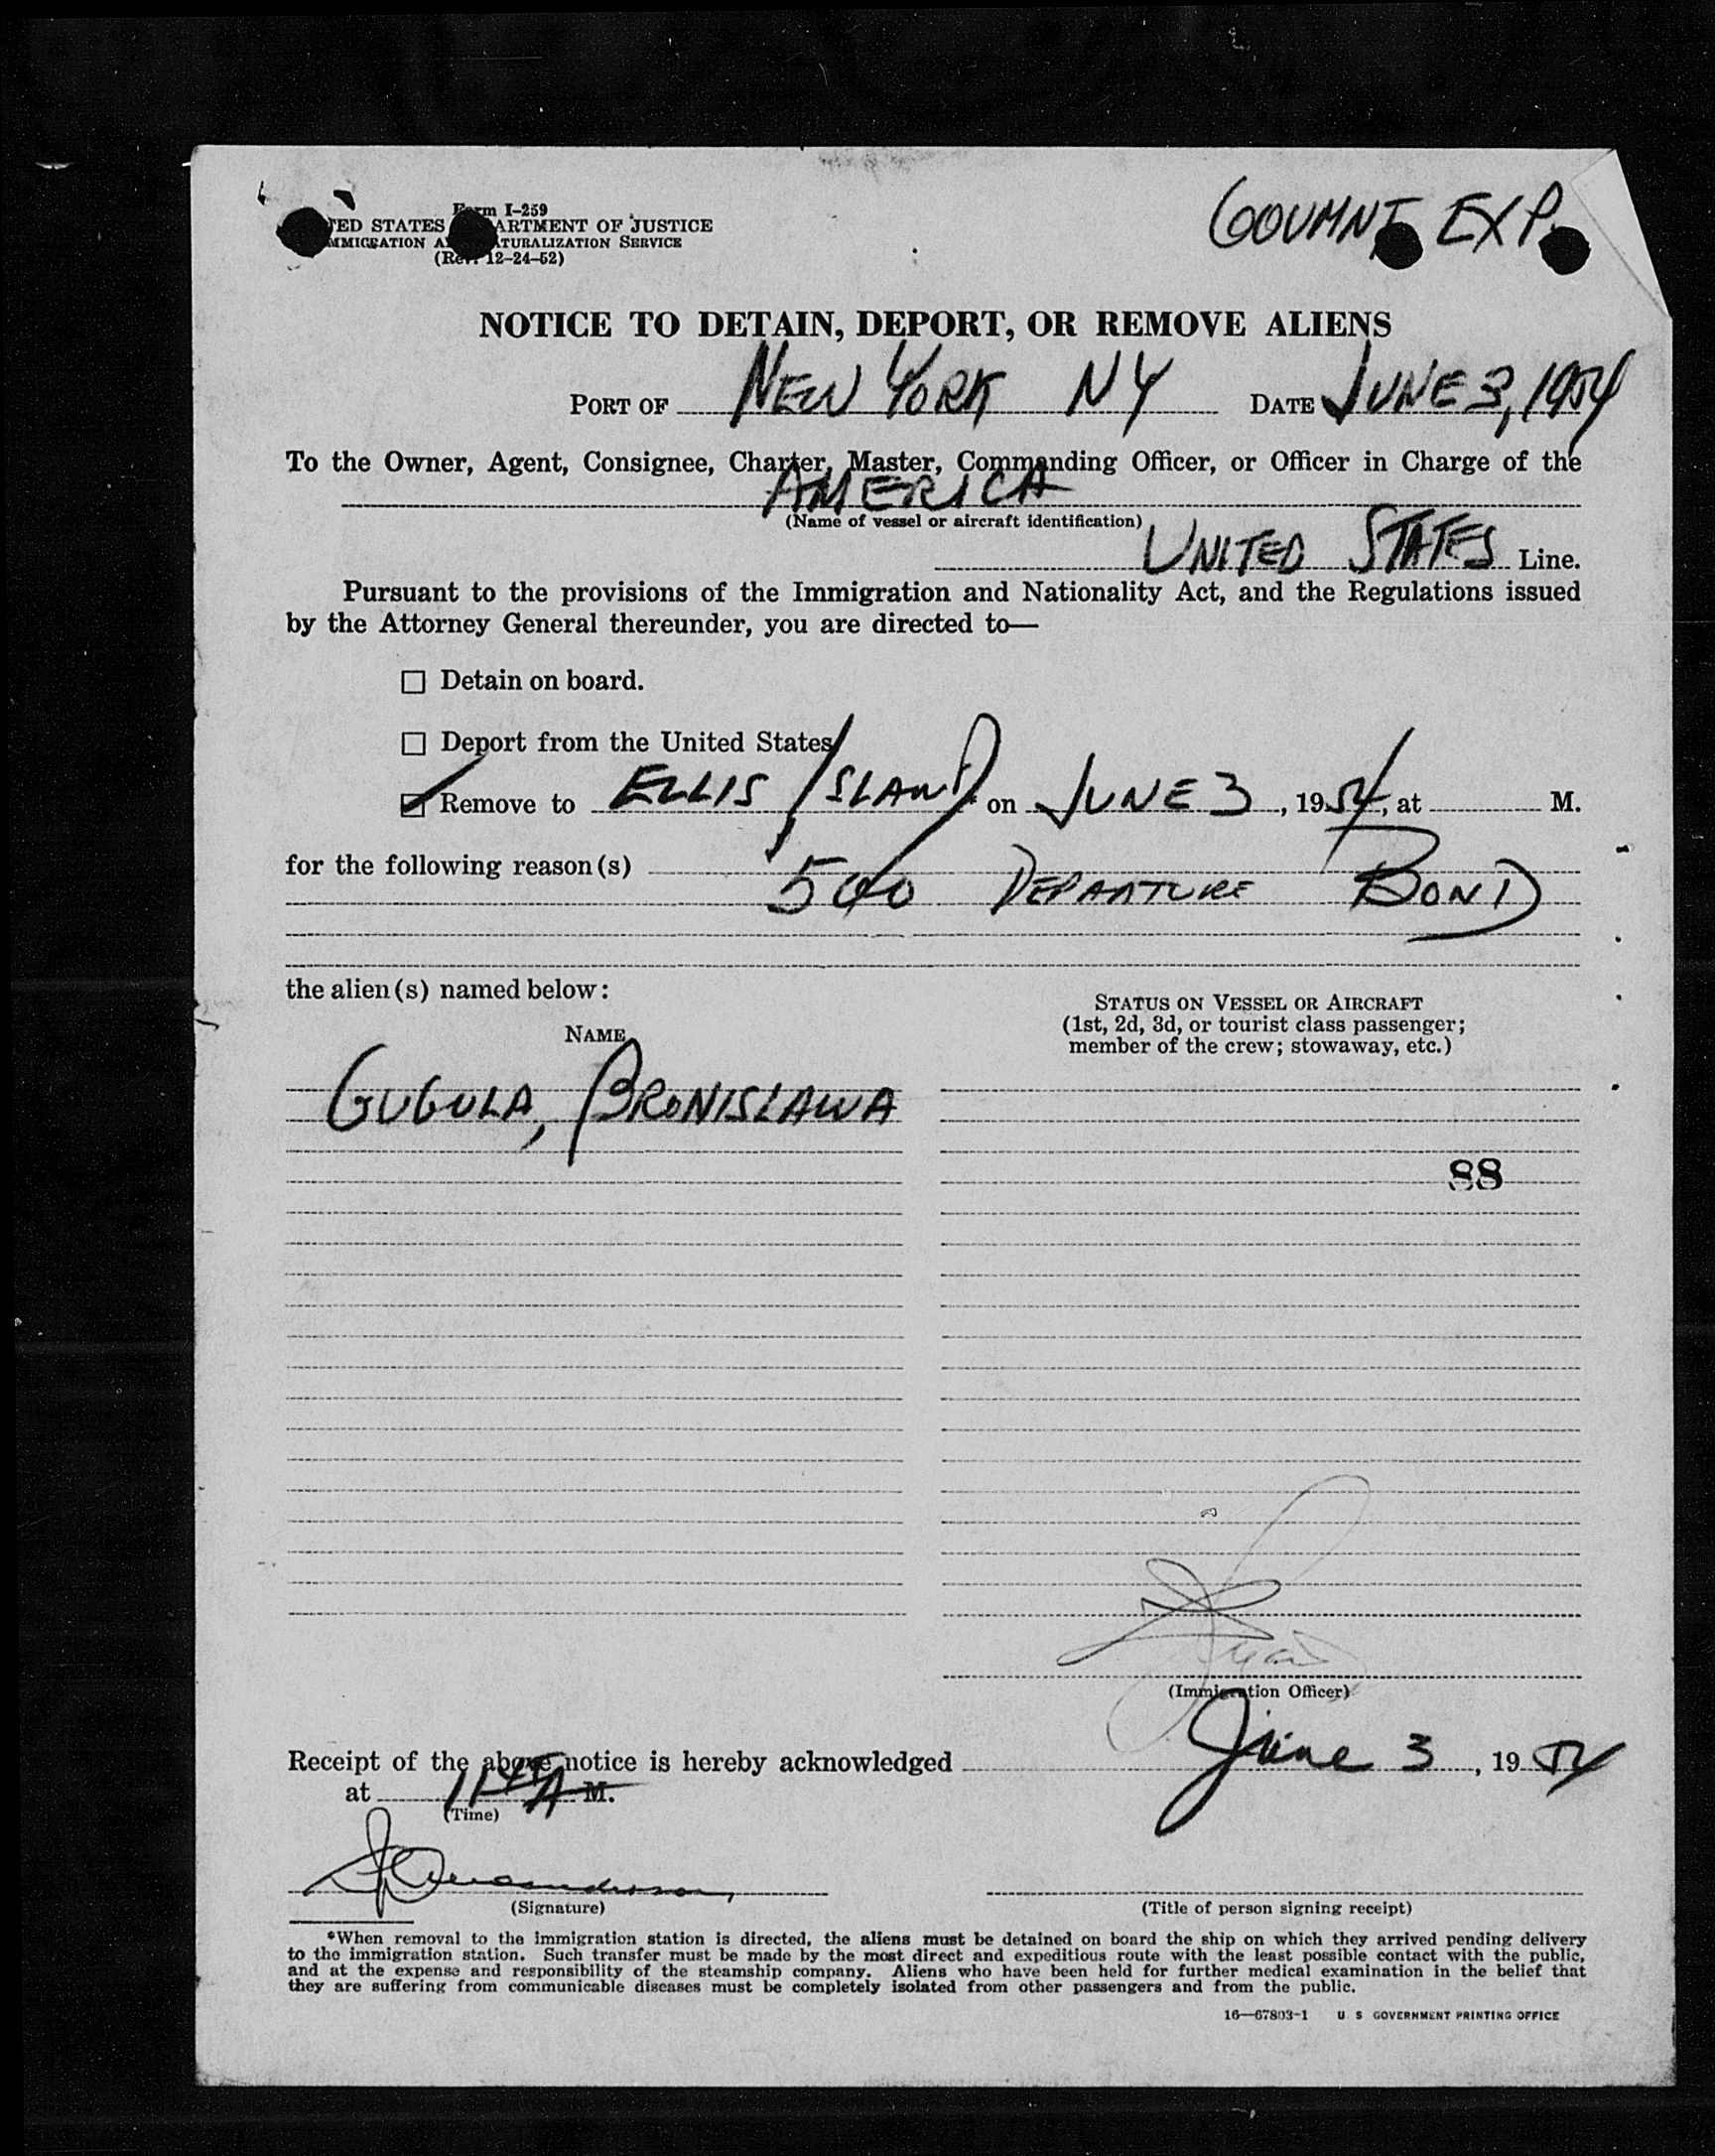 Form I-259
UNITED STATES DEPARTMENT OF JUSTICE
IMMIGRATION AND NATURALIZATION SERVICE
(Rev. 12-24-52)
GOVMNT EXP.
NOTICE TO DETAIN, DEPORT, OR REMOVE ALIENS
PORT OF NEW YORK NY DATE JUNE 3, 1954
To the Owner, Agent, Consignee, Charter, Master, Commanding Officer, or Officer in Charge of the
AMERICA
(Name of vessel or aircraft identification)
UNITED STATES Line.
Pursuant to the provisions of the Immigration and Nationality Act, and the Regulations issued
by the Attorney General thereunder, you are directed to—
☐ Detain on board.
☐ Deport from the United States
☑ Remove to ELLIS ISLAND on JUNE 3, 1954, at M.
for the following reason(s)
500 DEPARTURE BOND
the alien(s) named below:
NAME
STATUS ON VESSEL OR AIRCRAFT
(1st, 2d, 3d, or tourist class passenger;
member of the crew; stowaway, etc.)
GUGULA, BRONISLAWA
88
(Immigration Officer)
Receipt of the above notice is hereby acknowledged June 3, 1954
at 1145 A M.
(Time)
(Signature)
(Title of person signing receipt)
*When removal to the immigration station is directed, the aliens must be detained on board the ship on which they arrived pending delivery
to the immigration station. Such transfer must be made by the most direct and expeditious route with the least possible contact with the public,
and at the expense and responsibility of the steamship company. Aliens who have been held for further medical examination in the belief that
they are suffering from communicable diseases must be completely isolated from other passengers and from the public.
16—67803-1 U S GOVERNMENT PRINTING OFFICE